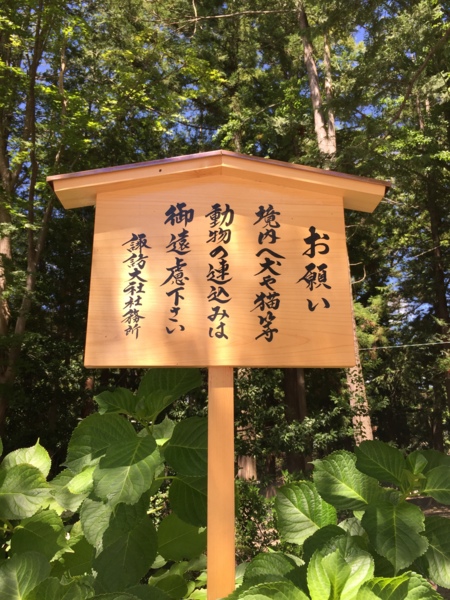 お願い
境内へ犬や猫等
動物の連込みは
御遠慮下さい
諏訪大社社務所